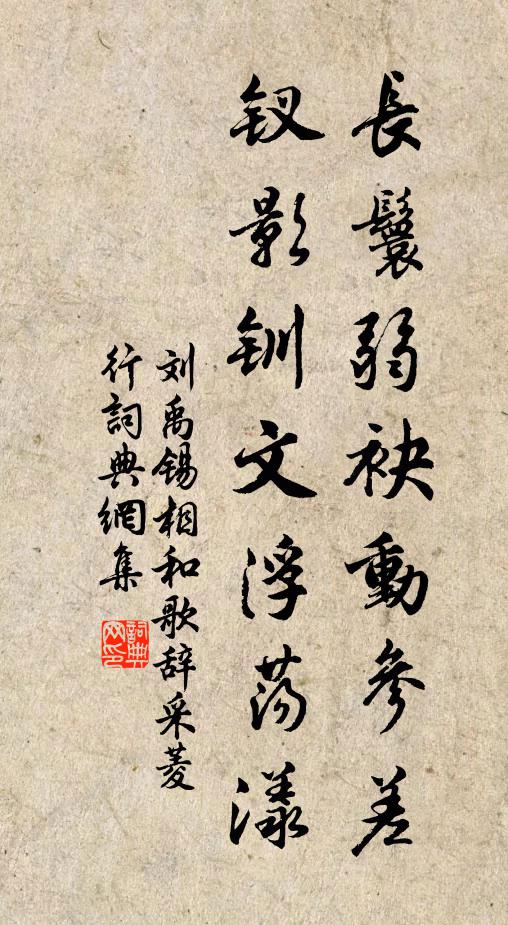 長鬟弱袂動參差
钗影钏文浮荡漾
刘禹锡相和歌辞采菱
行詞典網集
詞典网印